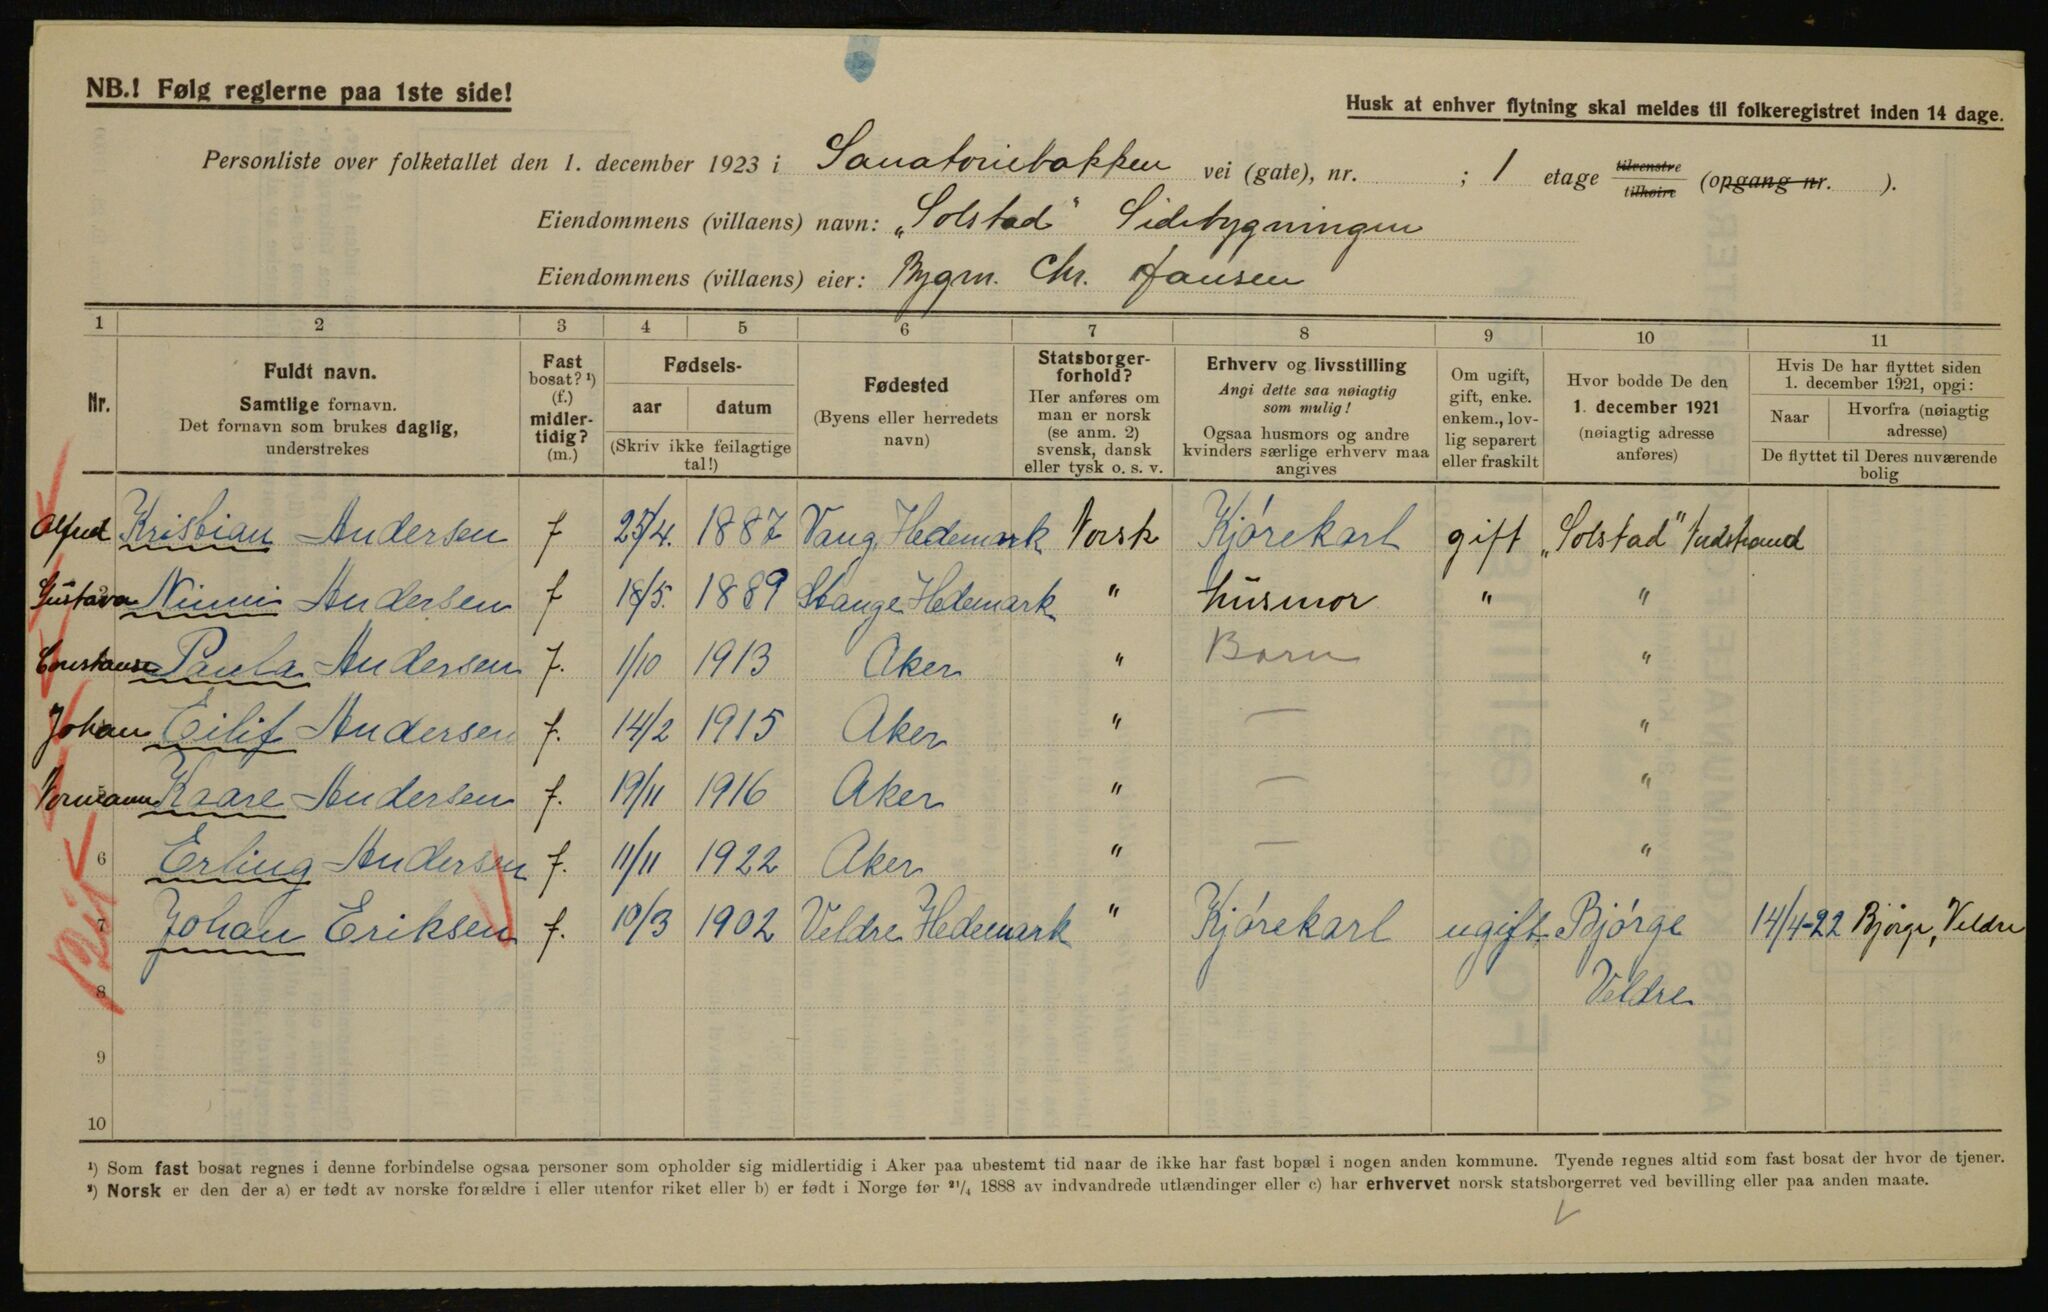 NB.! Følg reglerne paa 1ste side!
Husk at enhver flytning skal meldes til folkeregistret inden 14 dage.
Personliste over folketallet den 1. december 1923 i Sanatoriebakken vei (gate), nr. ; 1 etage tilvenstre tilhøire (opgang nr. ).
Eiendommens (villaens) navn: „Solstad" Sidebygningen
Eiendommens (villaens) eier: Bygm. Chr. Hansen
1 2 3 4 5 6 7 8 9 10 11
Nr.
Fuldt navn.
Samtlige fornavn.
Det fornavn som brukes daglig,
understrekes
Fast
bosat? ¹)
(f.)
midler-
tidig?
(m.)
Fødsels-
aar datum
(Skriv ikke feilagtige
tal!)
Fødested
(Byens eller herredets
navn)
Statsborger-
forhold?
Her anføres om
man er norsk
(se anm. 2)
svensk, dansk
eller tysk o. s. v.
Erhverv og livsstilling
Angi dette saa nøiagtig
som mulig!
Ogsaa husmors og andre
kvinders særlige erhverv maa
angives
Om ugift,
gift, enke.
enkem., lov-
lig separert
eller fraskilt
Hvor bodde De den
1. december 1921
(nøiagtig adresse
anføres)
Hvis De har flyttet siden
1. december 1921, opgi:
Naar
Hvorfra (nøiagtig
adresse)
De flyttet til Deres nuværende
bolig
Alfred Kristian Andersen f 25/4. 1887 Vang, Hedemark Norsk Kjørekarl gift „Solstad" Nordstrand
Gustava Ninni Andersen f 18/5. 1889 Stange Hedemark " husmor " "
Constanse Paula Andersen f. 1/10 1913 Aker " Barn "
Johan Eilif Andersen f. 14/2 1915 Aker " — "
5 Normann Kaare Andersen f. 19/11 1916 Aker " — "
6 Erling Andersen f. 11/11 1922 Aker " — "
7 Johan Eriksen f. 10/3 1902 Veldre Hedemark " Kjørekarl ugift Bjørge 14/4-22 Bjørge, Veldre
8 Veldre
9
10
¹) Som fast bosat regnes i denne forbindelse ogsaa personer som opholder sig midlertidig i Aker paa ubestemt tid naar de ikke har fast bopæl i nogen anden kommune. Tyende regnes altid som fast bosat der hvor de tjener.
²) Norsk er den der a) er født av norske forældre i eller utenfor riket eller b) er født i Norge før ²¹/₄ 1888 av indvandrede utlændinger eller c) har erhvervet norsk statsborgerret ved bevilling eller paa anden maate.